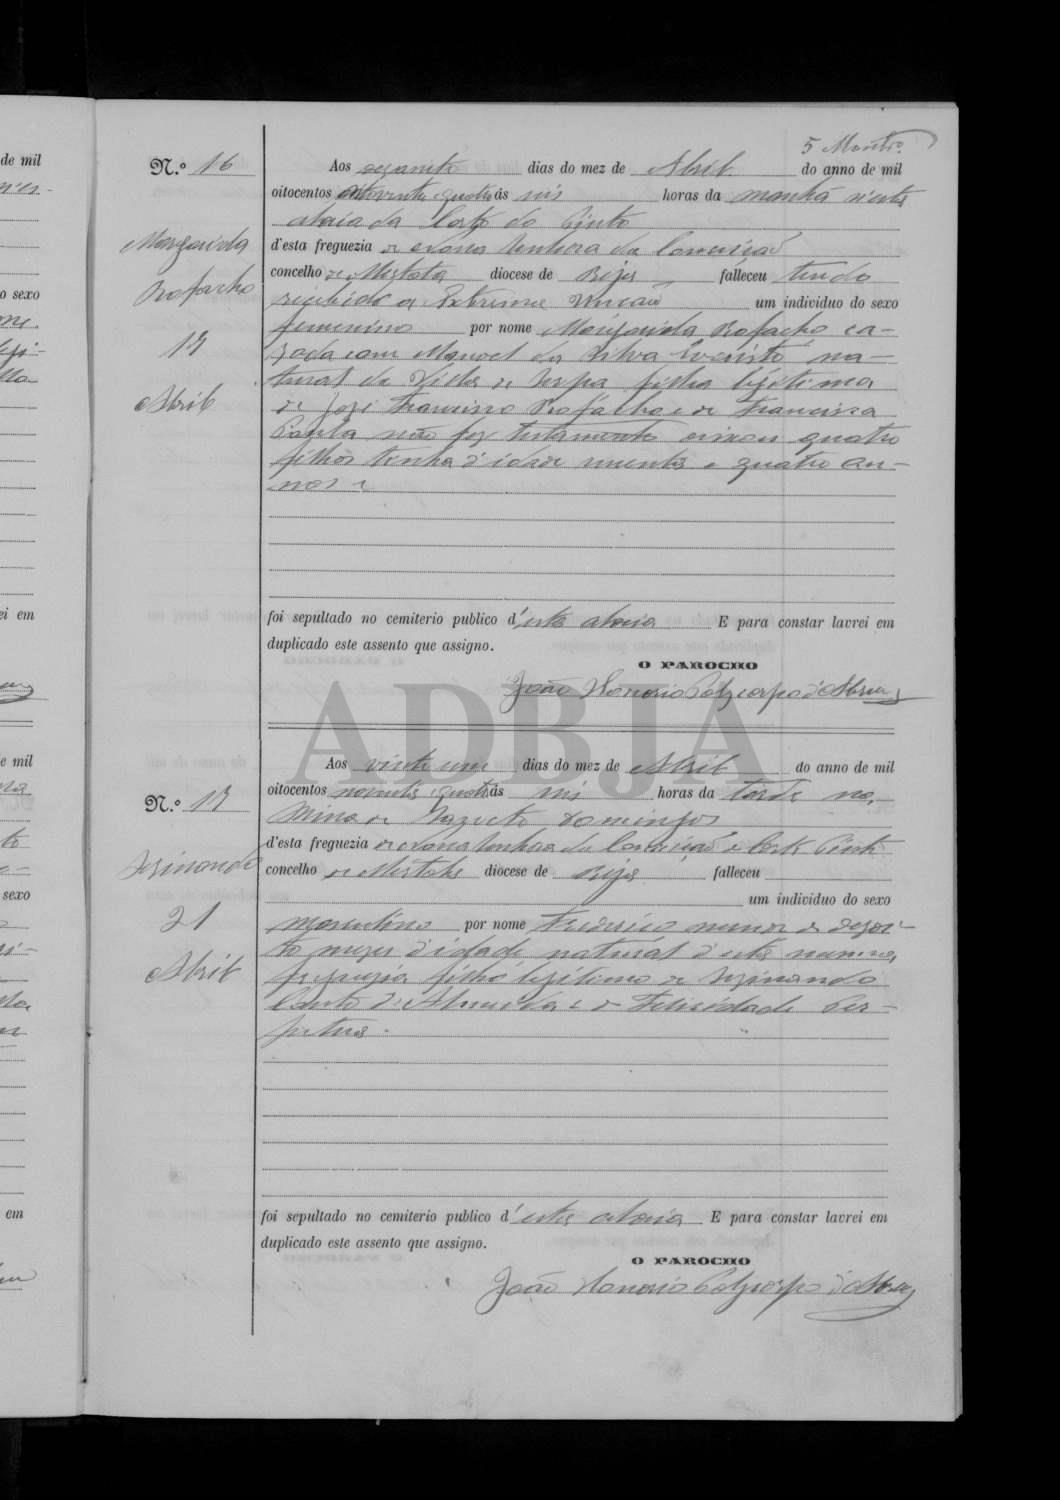 5 Montro.
N.º 16
Aos dias do mez de Abril do anno de mil
oitocentos noventa e quatro ás seis horas da manhã n'esta
aldeia da Corte do Pinto
d'esta freguezia de Nossa Senhora da Conceição
concelho de Mertola diocese de Beja falleceu tendo
recebido a Extrema Uncção um individuo do sexo
femenino por nome Margarida Rofacho ca-
zada com Manoel da Silva na-
tural da Villa de Serpa filha legitima
de José Francisco Rofacho e de Francisca
Paula não fez testamento deixou quatro
filhos tinha d'idade e quatro an-
nos
Margarida
Rofacho
Abril
foi sepultado no cemiterio publico d'esta aldeia E para constar lavrei em
duplicado este assento que assigno.
O PAROCHO
João Honorio Polycarpo d'Abreu
ADBJA
N.º 17
Aos vinte um dias do mez de Abril do anno de mil
oitocentos noventa e quatro ás seis horas da tarde na
Mina de Domingos
d'esta freguezia de Nossa Senhora da Conceição e Corte Pinto
concelho de Mertola diocese de Beja falleceu
um individuo do sexo
masculino por nome Frederico menor de dezoi-
to mezes d'idade natural d'esta mesma
freguezia filho legitimo de Sezinando
Canto d'Almeida e de Felicidade Per-
petua.
Sezinando
21
Abril
foi sepultado no cemiterio publico d'esta aldeia E para constar lavrei em
duplicado este assento que assigno.
O PAROCHO
João Honorio Polycarpo d'Abreu
de mil
o sexo
ei em
e mil
sexo
em